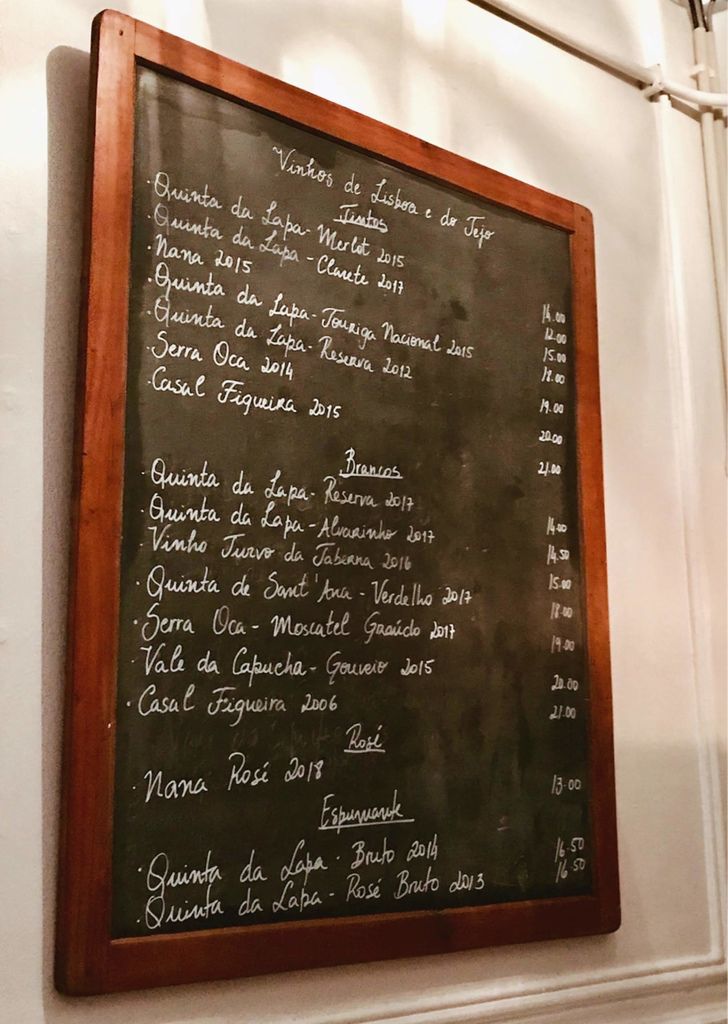 Vinhos de Lisboa e do Tejo
Tintos
· Quinta da Lapa - Merlot 2015 14.00
· Quinta da Lapa - Clarete 2017 12.00
· Nana 2015 15.00
· Quinta da Lapa - Touriga Nacional 2015 18.00
· Quinta da Lapa - Reserva 2012 19.00
· Serra Oca 2014 20.00
· Casal Figueira 2015 21.00
Brancos
· Quinta da Lapa - Reserva 2017 14.00
· Quinta da Lapa - Alvarinho 2017 14.50
· Vinho Turvo da Taberna 2016 15.00
· Quinta de Sant'Ana - Verdelho 2017 18.00
· Serra Oca - Moscatel Graúdo 2017 19.00
· Vale da Capucha - Gouveio 2015 20.00
· Casal Figueira 2006 21.00
Rosé
· Nana Rosé 2018 13.00
Espumante
· Quinta da Lapa · Bruto 2014 16.50
· Quinta da Lapa - Rosé Bruto 2013 16.50